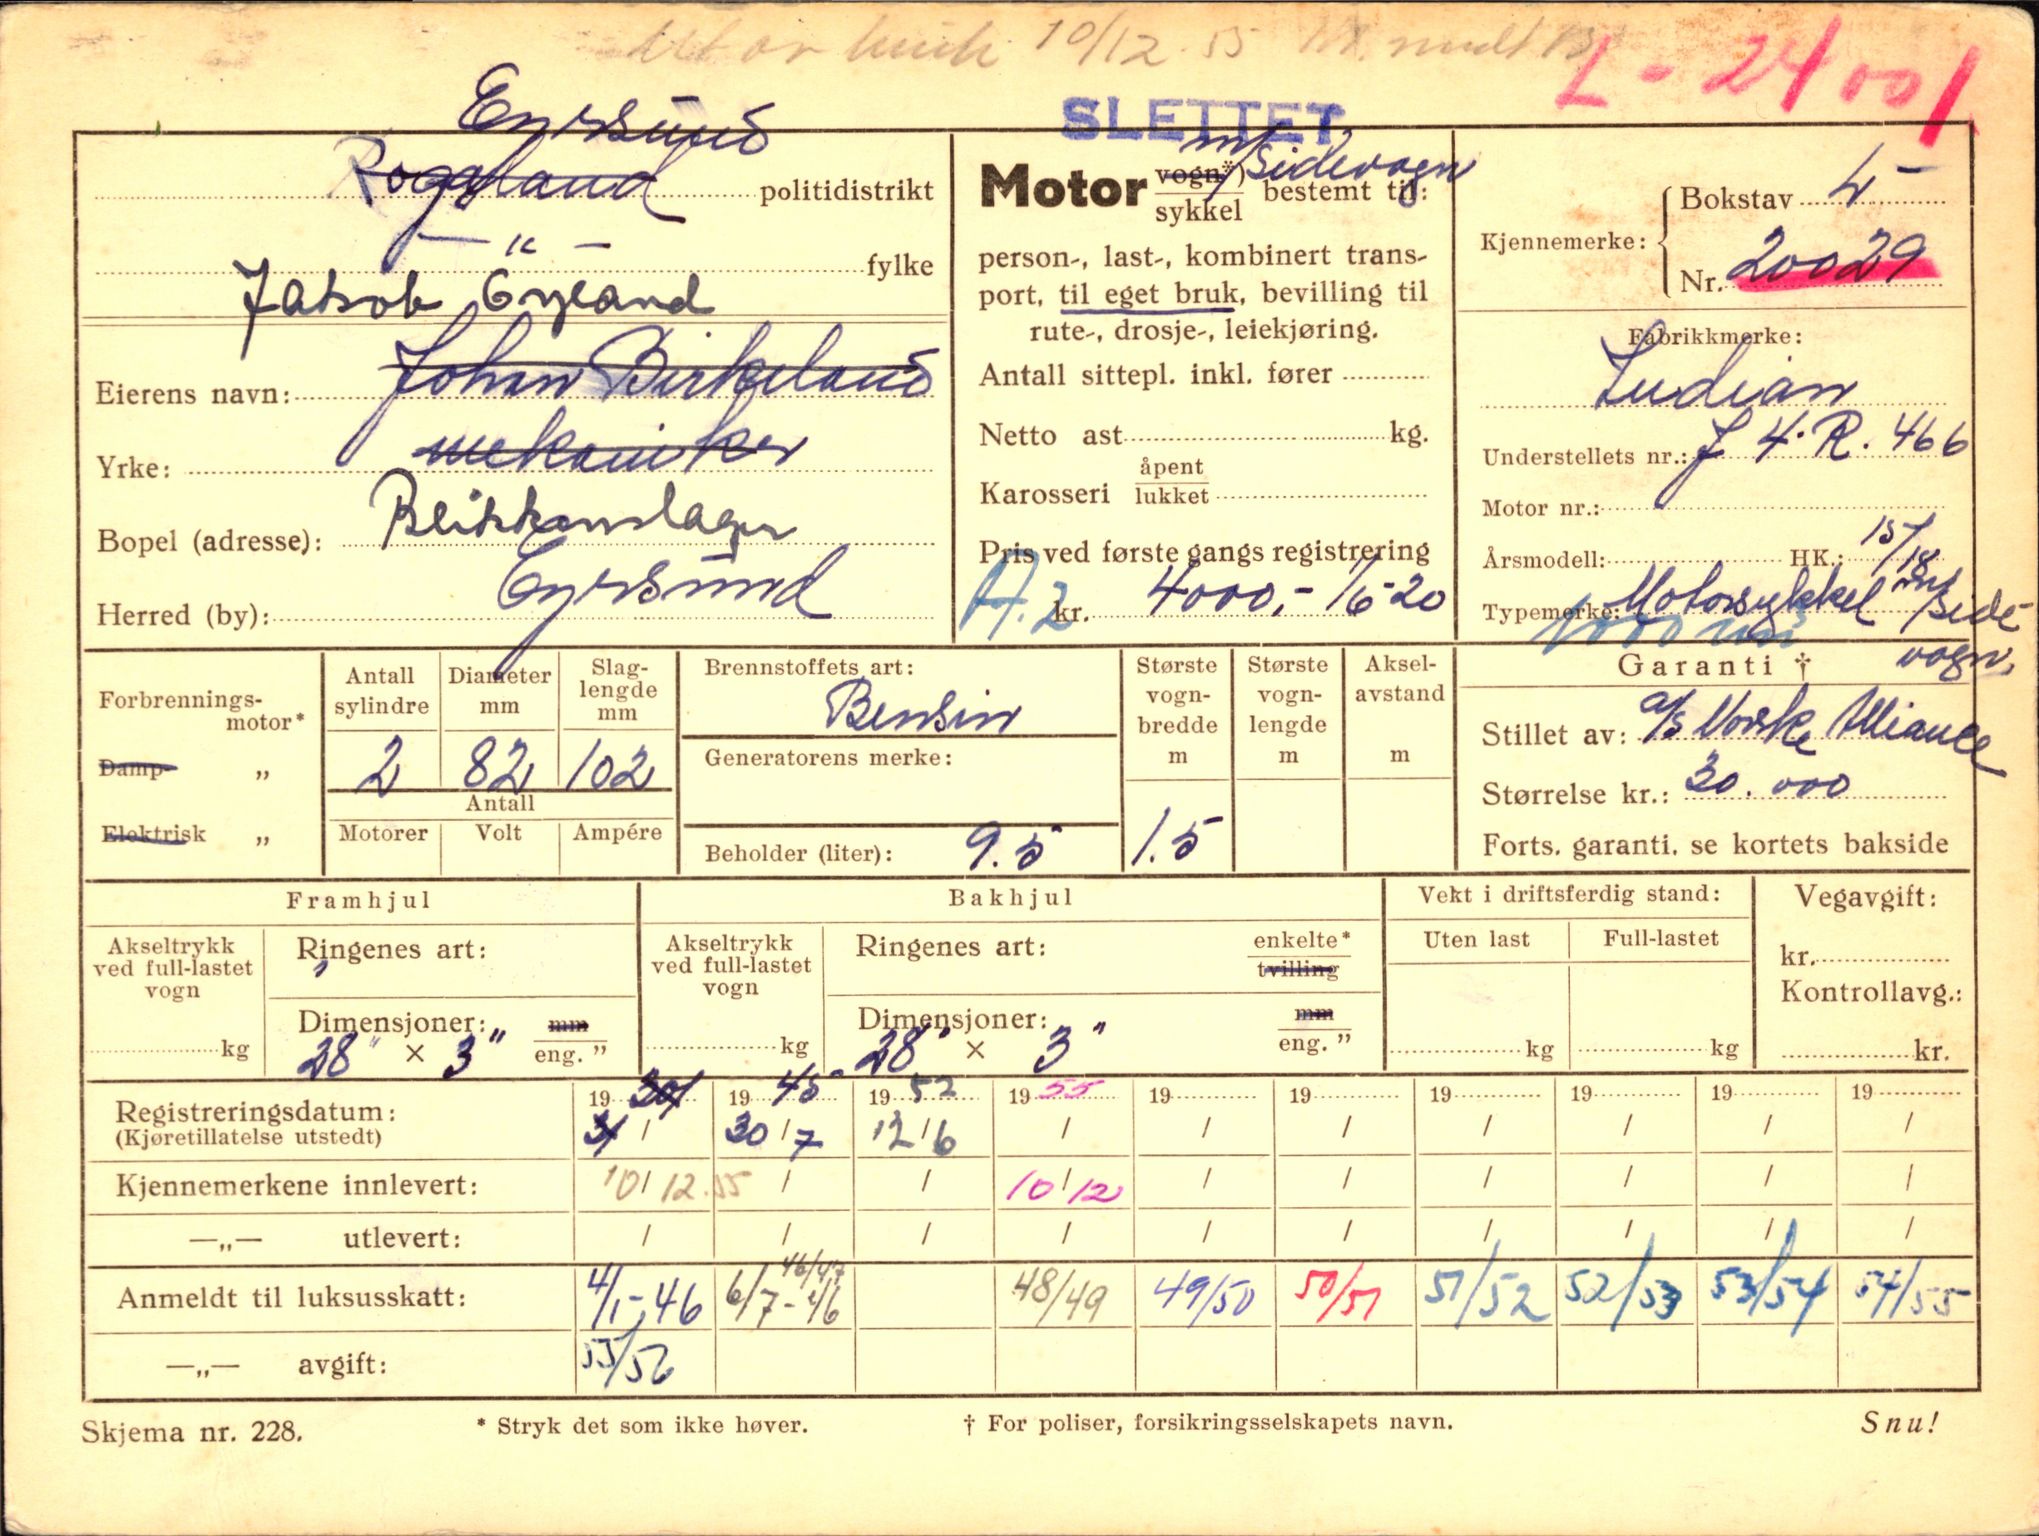 10/12.55
L - 24001
SLETTET
Egersund
Rogaland politidistrikt
— " — fylke
Jakob Eyeland
Eierens navn: Johan Birkeland
Yrke: mekaniker
Bopel (adresse): Blikkenslager
Herred (by): Egersund
Motor vogn*) / sykkel m/Sidevogn bestemt til:
person-, last-, kombinert trans-
port, til eget bruk, bevilling til
rute-, drosje-, leiekjøring.
Antall sittepl. inkl. fører
Netto ast kg.
Karosseri åpent / lukket
Pris ved første gangs registrering
A.2 kr. 4000,- 1/6-20
Kjennemerke: Bokstav L-
Nr. 20029
Fabrikkmerke:
Indian
Understellets nr.: J 4.R.466
Motor nr.:
Årsmodell: HK.: 15/18
Typemerke: Motorsykkel m/ Side-
vogn.
Forbrennings-
motor*
Damp- „
Elektrisk „
Antall sylindre 2
Diameter mm 82
Slag-lengde mm 102
Antall
Motorer Volt Ampére
Brennstoffets art:
Bensin
Generatorens merke:
Beholder (liter): 9.5
Største vogn-bredde m 1.5
Største vogn-lengde m
Aksel-avstand m
Garanti †
Stillet av: a/s Norske Alliance
Størrelse kr.: 30.000
Forts. garanti. se kortets bakside
Framhjul
Akseltrykk ved full-lastet vogn
kg
Ringenes art:
Dimensjoner: mm / eng. ”
28" × 3"
Bakhjul
Akseltrykk ved full-lastet vogn
kg
Ringenes art: enkelte* / tvilling
Dimensjoner: mm / eng. ”
28" × 3"
Vekt i driftsferdig stand:
Uten last Full-lastet
kg kg
Vegavgift:
kr.
Kontrollavg.:
kr.
19 19 45 19 52 19 55 19 19 19 19 19 19
Registreringsdatum: / 30/7 12/6 / / / / / / /
(Kjøretillatelse utstedt)
Kjennemerkene innlevert: 10/12.55 / / 10/12 / / / / / /
—„— utlevert: / / / / / / / / / /
Anmeldt til luksusskatt: 4/1-46 6/7-4/6 46/47 48/49 49/50 50/51 51/52 52/53 53/54 54/55
—„— avgift: 55/56
Skjema nr. 228.
* Stryk det som ikke høver.
† For poliser, forsikringsselskapets navn.
Snu!